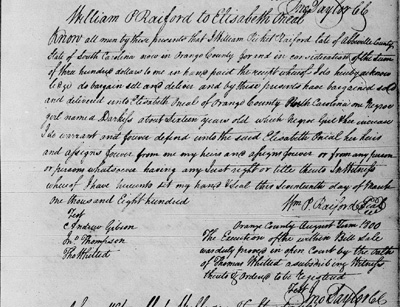 Jno Taylor CC
William P Raiford to Elisabeth Oneal
Know all men by these presents that I William Picket Raiford late of Abbeville County
State of South Carolina now in Orange County for and in consideration of the sum
of three hundred dollars to me in hand paid the receipt whereof I do hereby acknow
ledge do bargain sell and deliver and by these presents have bargained sold
and delivered unto Elizabeth Oneal of Orange County North Carolina one Negroe
girl named Darkis about Sixteen years old which negroe Girl & her increase
I do warrant and forever defend unto the said Elizabeth Oneal her heirs
and assigns forever from me my heirs and assigns forever or from any person
or persons whatsoever having any Just right or title thereto In Witness
whereof I have hereunto Set my hand & Seal this Seventeenth day of March
one thousand and Eight hundred
Wm P. Raiford Seal
Test
Andrew Gibson
Jno Thompson
Tho Whitted
Orange County August Term 1800
The Execution of the within Bill Sale
was duly proved in open Court by the oath
of Thomas Whitted a subscribing Witness
thereto & Ordered to be registered
Test
Jno Taylor CC